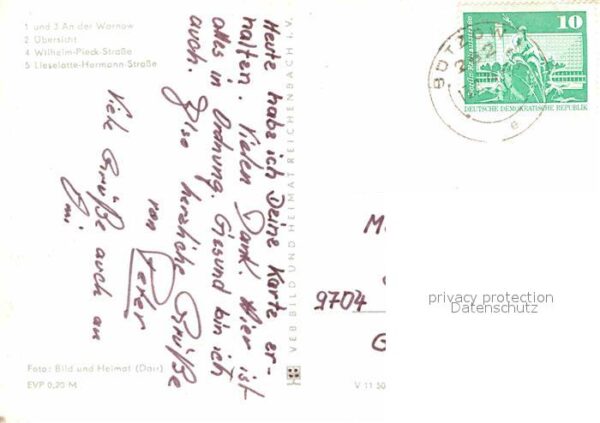 1 und 3 An der Warnow
2 Übersicht
4 Wilhelm-Pieck-Straße
5 Lieselotte-Hermann-Straße
Heute habe ich Deine Karte er-
halten. Vielen Dank. Hier ist
alles in Ordnung. Gesund bin ich
auch. Also herzliche Grüße
von Peter
Viele Grüße auch an
Foto: Bild und Heimat (Dair)
EVP 0,20 M
VEB BILD UND HEIMAT REICHENBACH i. V.
V 11 50
BÜTZOW
10
DEUTSCHE DEMOKRATISCHE REPUBLIK
9704
G
privacy protection
Datenschutz